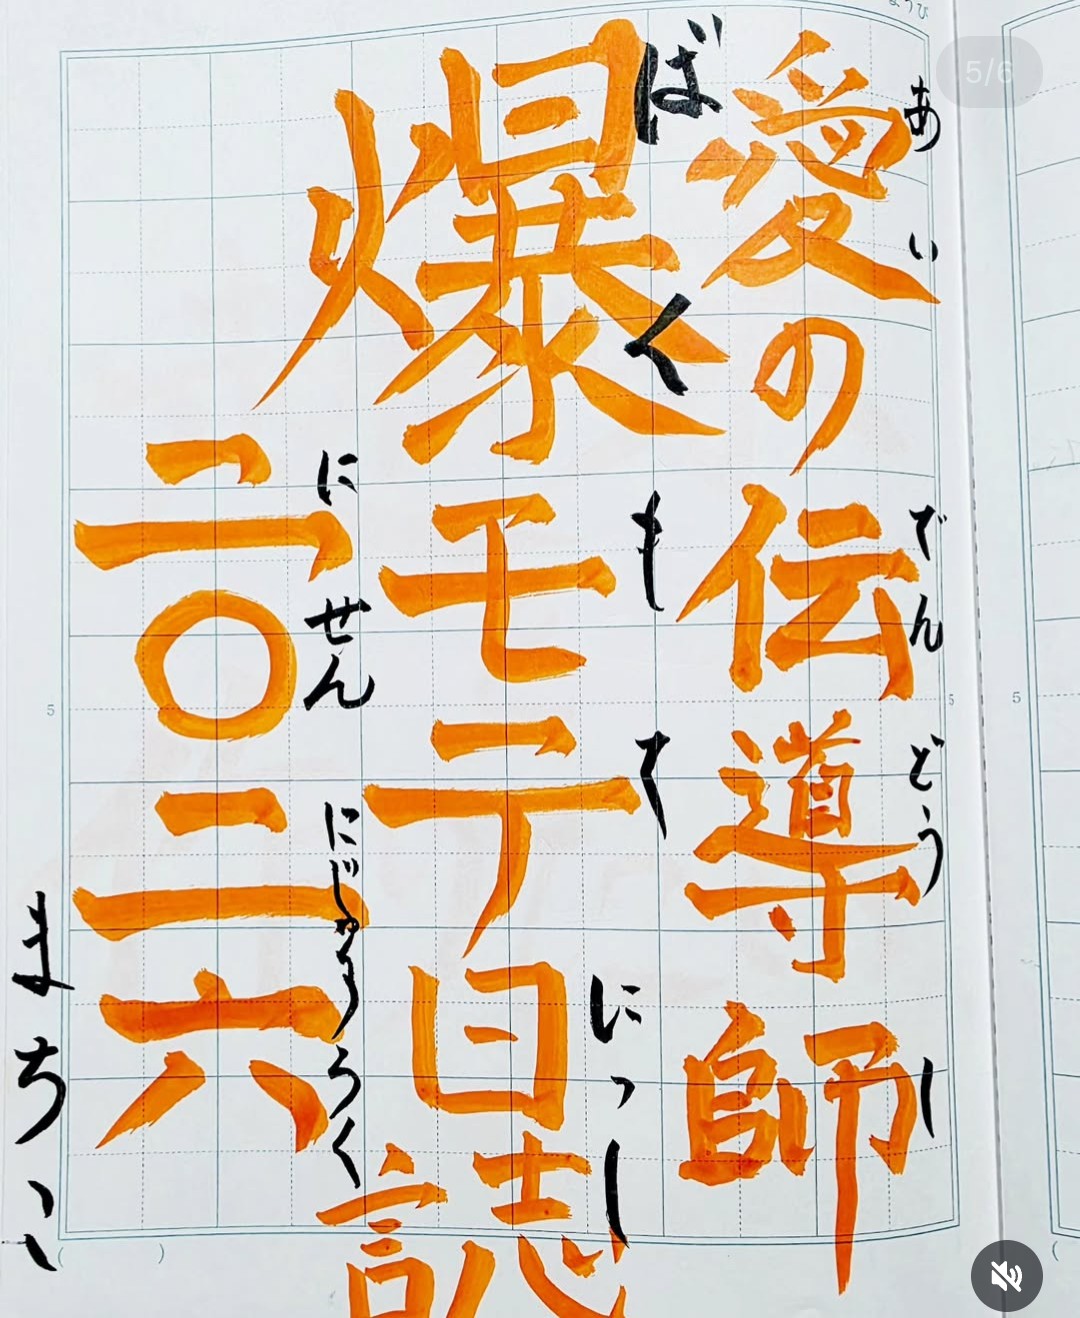 愛の伝導師
あいでんどうし
爆モテ日誌
ばくもてにっし
二〇二六
にせんにじゅうろく
まちこ
5/6
5
5
5